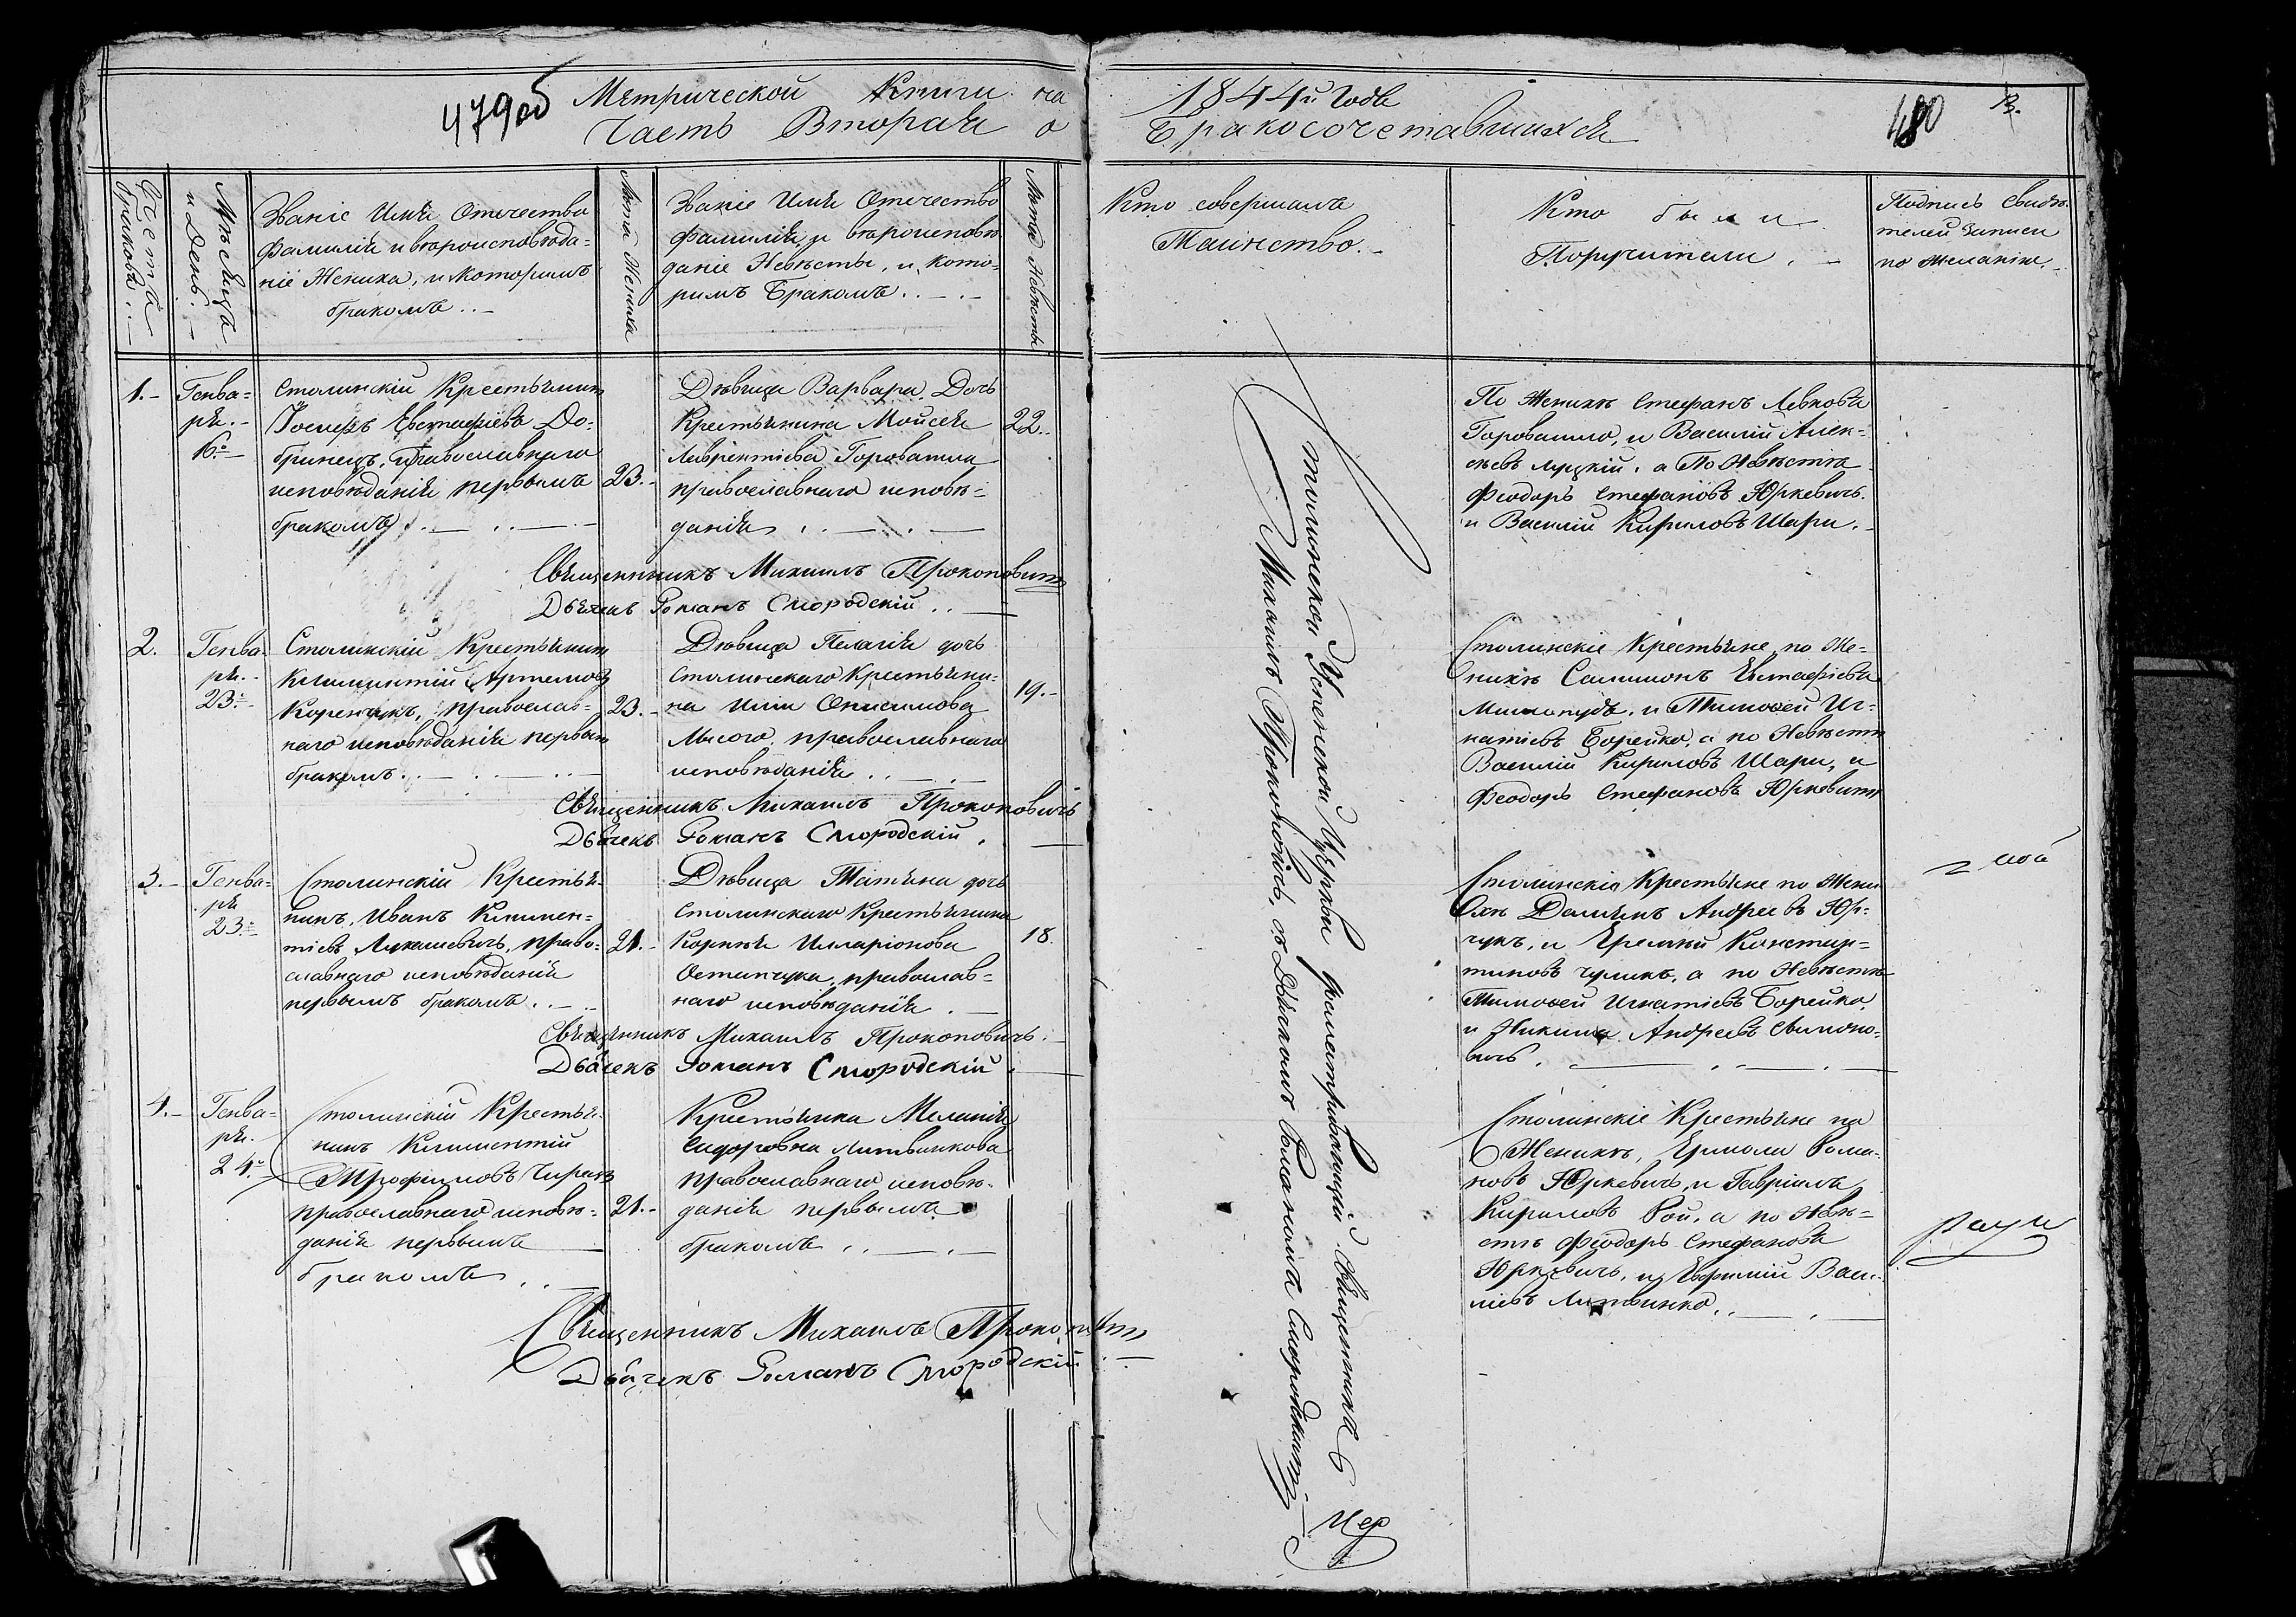 479об Метрической Книги на
Часть Вторая о
1844й Года
Бракосочетавшихся
480
Счетъ браковъ.
Мѣсяцъ и День.
Званіе Имя Отечество
фамилія и вѣроисповѣда=
ніе Жениха, и которымъ
бракомъ
Лѣта Жениха
Званіе Имя Отечество
фамилія и вѣроисповѣ
даніе Невѣсты, и кото=
римъ Бракомъ
Лѣта Невѣсты
Кто совершалъ
Таинство.
Кто были
Поручители.
Подпись свидѣ=
телей записи
по желанію.
1.
Генва=
ря.
16.
Столинскій Крестьянинъ
Іосифъ Евстафіевъ До=
бринецъ, Православнаго
исповѣданія первымъ
бракомъ
23.
Дѣвица Варвара Дочь
Крестьянина Мойсея
Лаврентіева Горовашка
православнаго исповѣ=
данія
22.
По Женихѣ Стефанъ Левковъ
Горовашко, и Василій Алек=
сѣевъ Луцкій. а По Невѣстѣ
Феодоръ Стефановъ Юркевичь.
и Василій Кириловъ Шари.
Священникъ Михаилъ Прокоповичъ
Дьячекъ Романъ Смородскій
2.
Генва
ря.
23.
Столинскій Крестьянинъ
Климентій Артемовъ
православ=
наго исповѣданія первымъ
бракомъ.
23.
Дѣвица Пелагія дочь
Столинскаго Крестьяни=
на Иліи Онисимова
Лысого, православнаго
исповѣданія
19.
Столинскіе Крестьяне, по Же=
нихѣ Самсонъ Евстафіевъ
и Тимофей Иг=
натіевъ Борейко, а по Невѣстѣ
Василій Кириловъ Шари, и
Феодоръ Стефановъ Юркевичъ
Священникъ Михаилъ Прокоповичь
Дьячекъ Романъ Смородскій.
3.
Генва=
ря
23.
Столинскій Крестья=
нинъ, Иванъ Климен=
тіевъ Лукашевичь, право=
славнаго исповѣданія
первымъ бракомъ.
21.
Дѣвица Татіяна дочь
Столинскаго Крестьянина
Корнѣя Илларіонова
Остапчука, православ=
наго исповѣданія
18.
Столинскіе Крестьяне по Жени
хѣ Даміянъ Андреевъ Юр=
чукъ, и Еремѣй Констан=
тиновъ Чуликъ, а по Невѣстѣ
Тимофей Игнатіевъ Борейко,
и Никита Андреевъ Симоно=
вичь.
Священникъ Михаилъ Прокоповичь.
Дьячекъ Романъ Смородскій
4.
Генва=
ря.
24.
Столинскій Крестья=
нинъ Климентій
Трофимовъ
православнаго исповѣ=
данія первымъ
бракомъ
21.
Крестьянка Меланія
Сидоровна Литвинкова
православнаго исповѣ=
данія первымъ
бракомъ
Столинскіе Крестьяне по
Женихѣ, Ермола Рома=
новъ Юркевичь, и Гавріилъ
Кириловъ Рой, а по Невѣ=
стѣ Феодоръ Стефановъ
Юркевичь, и Евфимій Васи=
ліевъ Литвинко.
Священникъ Михаилъ Прокоповичъ
Дьячекъ Романъ Смородскій
Столинской Успенской Церкви разсматривающій Священникъ
Михаилъ Прокоповичь, съ Дьячкомъ Романомъ Смородскимъ